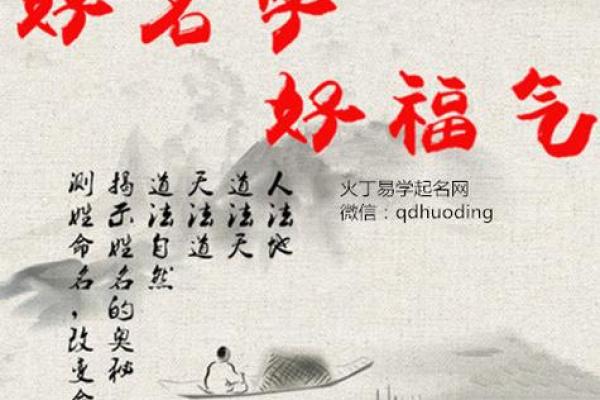 好名字
好福气
火丁易学起名网
微信：qdhuoding
人法地
道法天
天法道
道法自然
揭示姓名的奥秘
测姓命名，改变命